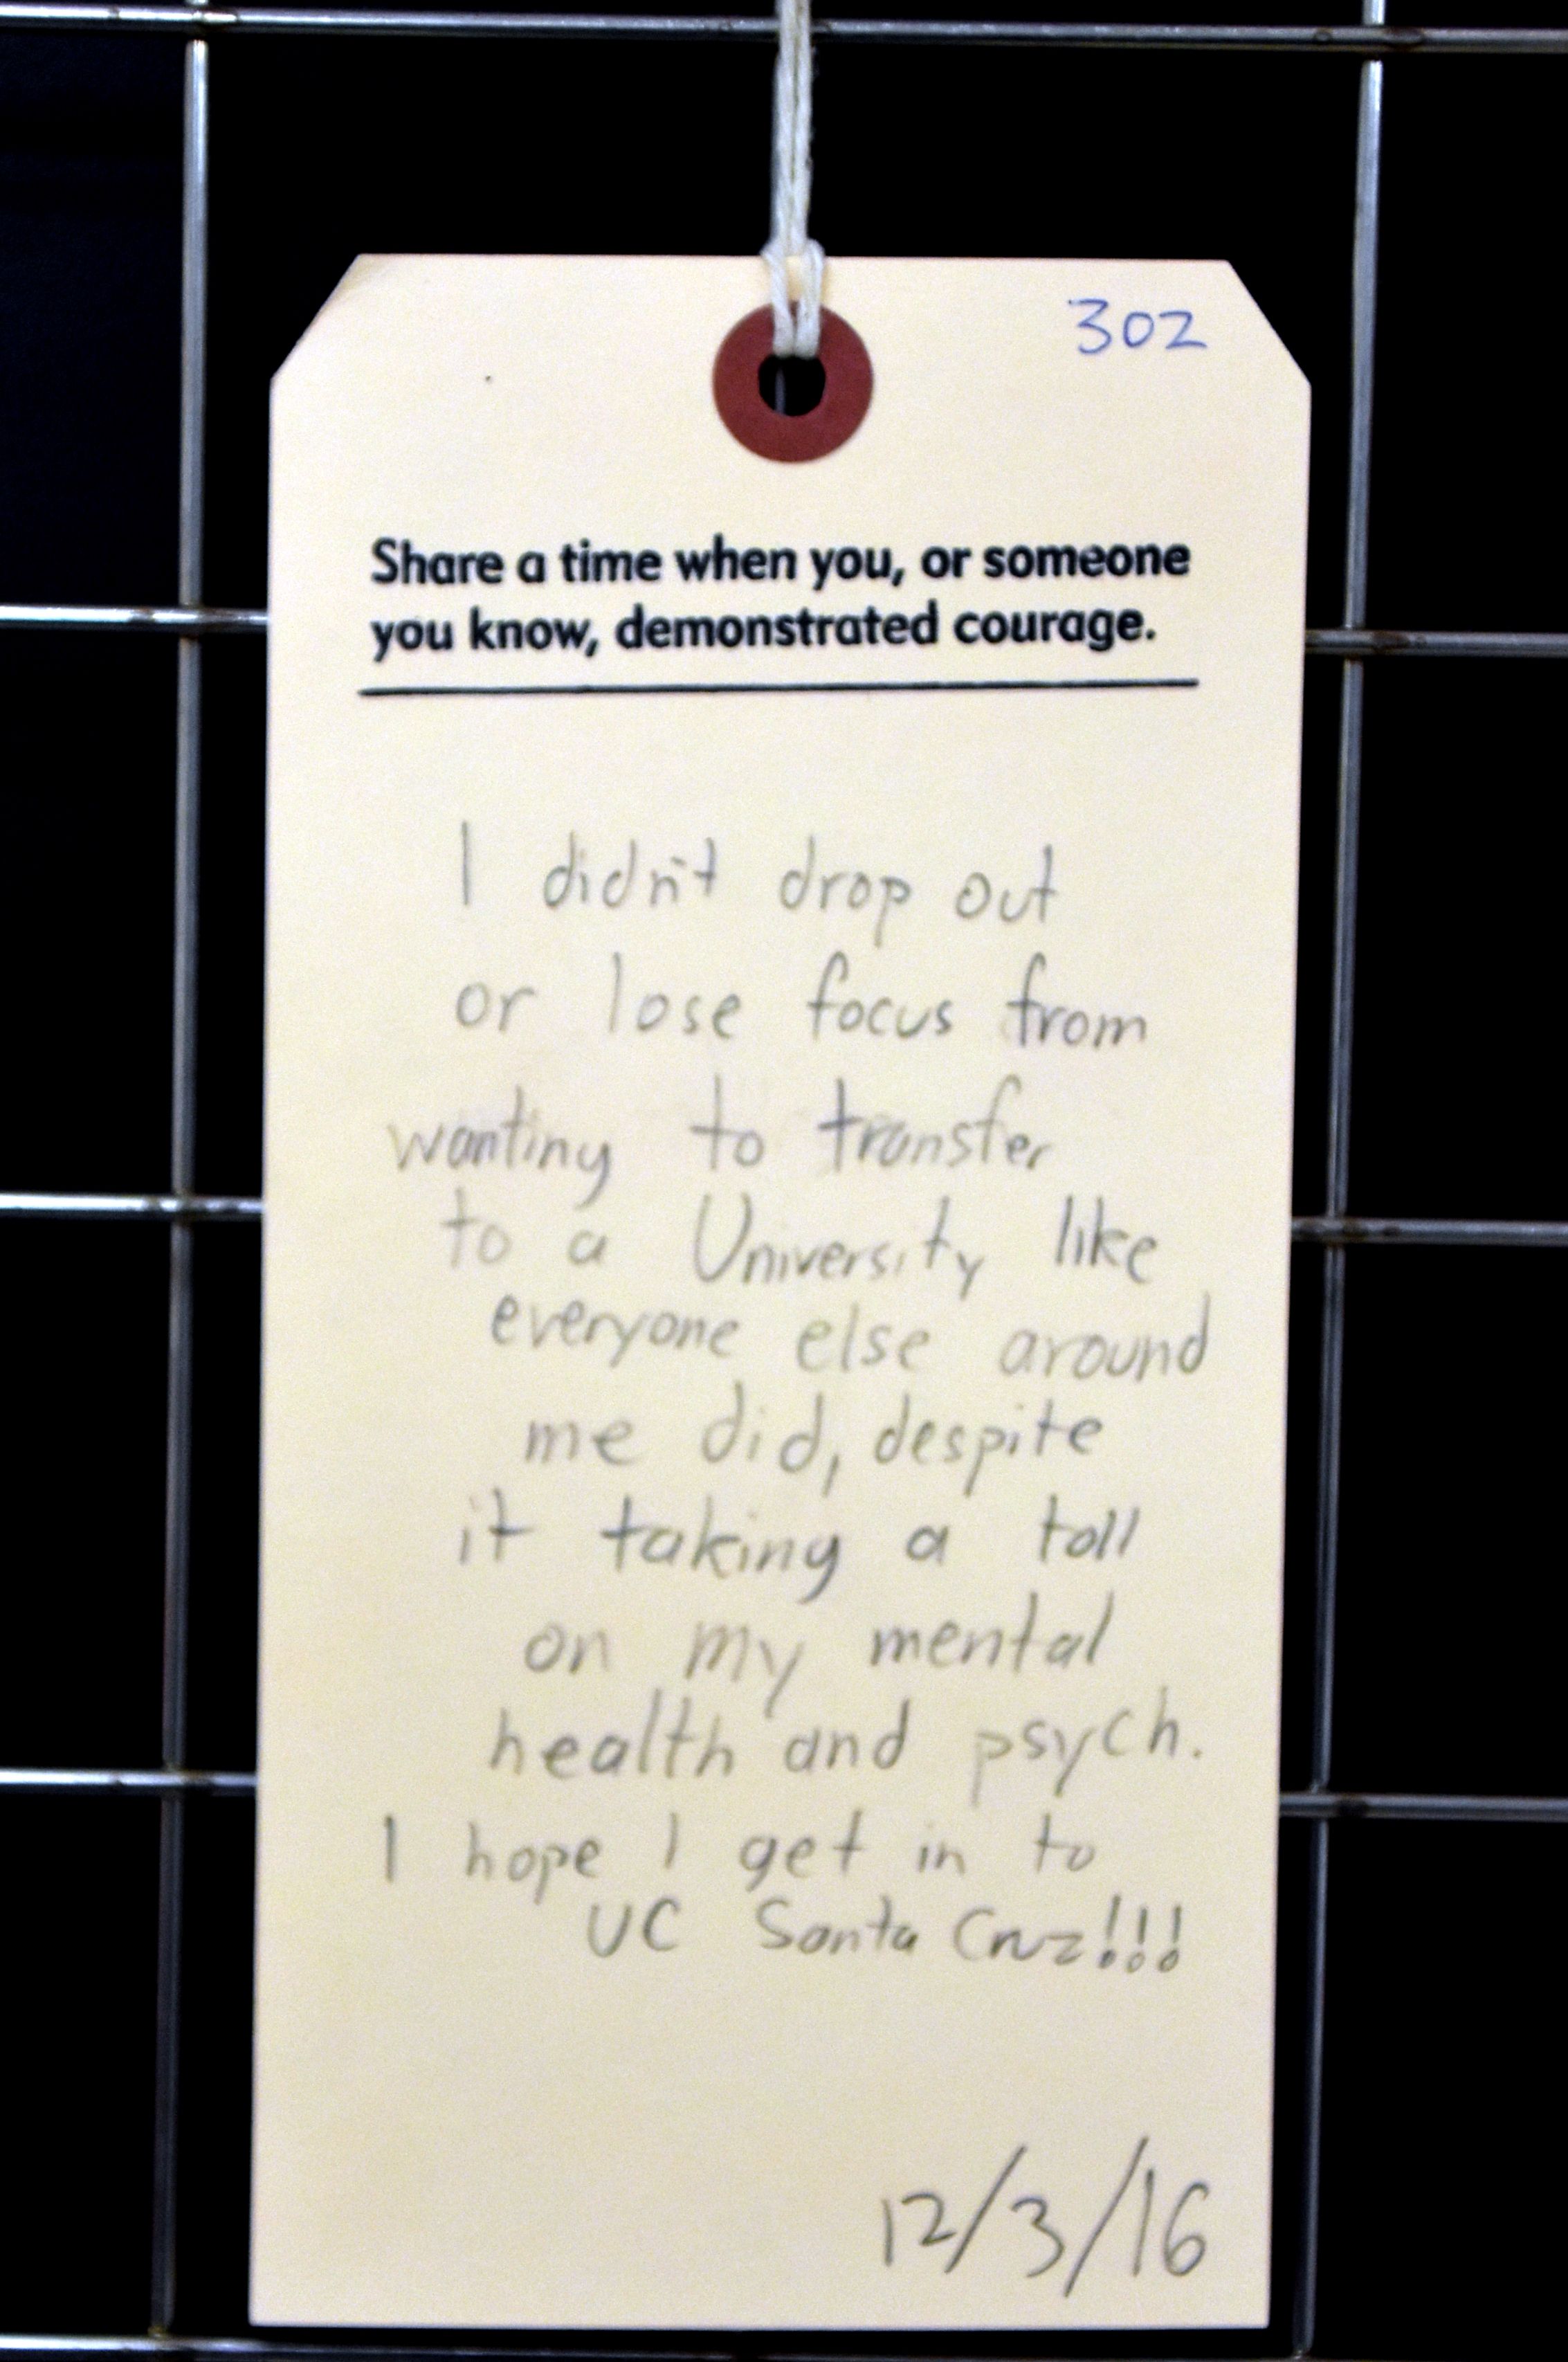 302
Share a time when you, or someone
you know, demonstrated courage.
I didn't drop out
or lose focus from
wanting to transfer
to a University like
everyone else around
me did, despite
it taking a toll
on my mental
health and psych.
I hope I get in to
UC Santa Cruz!!!
12/3/16